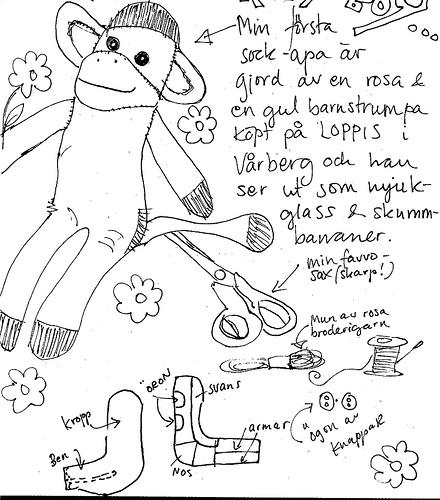 Min första
sock-apa är
gjord av en rosa &
en gul barnstrumpa
köpt på LOPPIS i
Vårberg och han
ser ut som mjuk-
glass & skumm-
bananer.
min favvo-
sax (skarp!)
Mun av rosa
broderigarn
ÖRON
svans
kropp
armar
Ben
NOS
ögon av
knappar